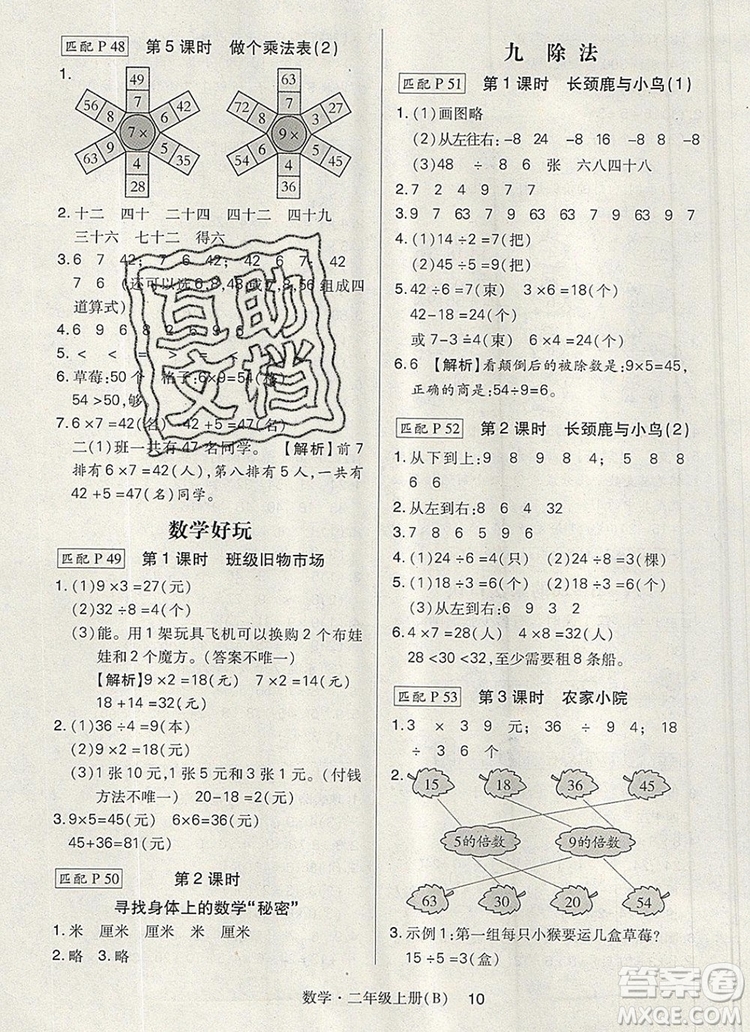 匹配 P 48 第5课时 做个乘法表(2)
1.
49
56 8 7 42
7 6
7×
9 5
63 4 35
28
63
72 8 7 54
9 6
9×
5 5
45 4 45
36
2.十二 四十 二十四 四十四 四十九
三十六 七十二 得六
3.6 7 42; 7 6 42; 42 6 7; 42
7 6 (还可以选6,8,48或7,8,56组成四
道算式)
4.6 9 6 8
5.< < <
6.草莓:50个 格子:6×9=54(个)
54>50,够
7.6×7=42(名) 42+5=47(名)
二(1)班一共有47名同学。【解析】前7
排有6×7=42(人),第八排有5人,一共有
42+5=47(名)同学。
数学好玩
匹配 P 49 第1课时 班级旧物市场
1.(1)9×3=27(元)
(2)32÷8=4(个)
(3)能。用1架玩具飞机可以换购2个布娃
娃和2个魔方。(答案不唯一)
【解析】9×2=18(元) 7×2=14(元)
18+14=32(元)
2.(1)36÷4=9(本)
(2)2×9=18(元)
(3)1张10元,1张5元,3张1元。(付钱
方法不唯一) 20-18=2(元)
3.9×5=45(元) 6×6=36(元)
45+36=81(元)
匹配 P 50 第2课时
寻找身体上的数学“秘密”
1.米 厘米 厘米 厘米 米 厘米
2.略 3.略
九 除法
匹配 P 51 第1课时 长颈鹿与小鸟(1)
1.(1)画图略
(2)从左往右:-8 24 -8 -8 8 -8
(3)48 ÷ 8 6 张 六八四十八
2.7 2 4 9
3.9 7 63 7 9 63 63 7 9 63 9 7
4.(1)14÷2=7(把)
(2)45÷5=9(把)
5.42÷6=7(束) 3×6=18(个)
42-18=24(个)
或7-3=4(束) 4×6=24(个)
6.6 【解析】看颠倒后的被除数是:9×5=45,
正确的商是:54÷9=6。
匹配 P 52 第2课时 长颈鹿与小鸟(2)
1.从下到上: 9 8 9 8 4; 5 4 8
6 6
2.从左到右:8 6 4 32
3.7 8 6 5 9 6
4.(1)24÷6=4(只) (2)24÷8=3(棵)
5.(1)从左到右: 9 9 6 7 8 9
(2)从左到右: 9 9 6 7 8 9
6.4×7=28(人) 4×8=32(人)
28<30<32,至少需要租8条船。
匹配 P 53 第3课时 农家小院
1.3 × 3 9 元; 36 ÷ 9 4; 18
÷ 3 6 个
2.
15 18 36 45
5的倍数 9的倍数
63 30 20 54
3.示例1:第一组每只小猴要运几盒草莓?
15÷5=3(盒)
数学·二年级上册(B) 10
互助文档
答案圈
MXQE.COM